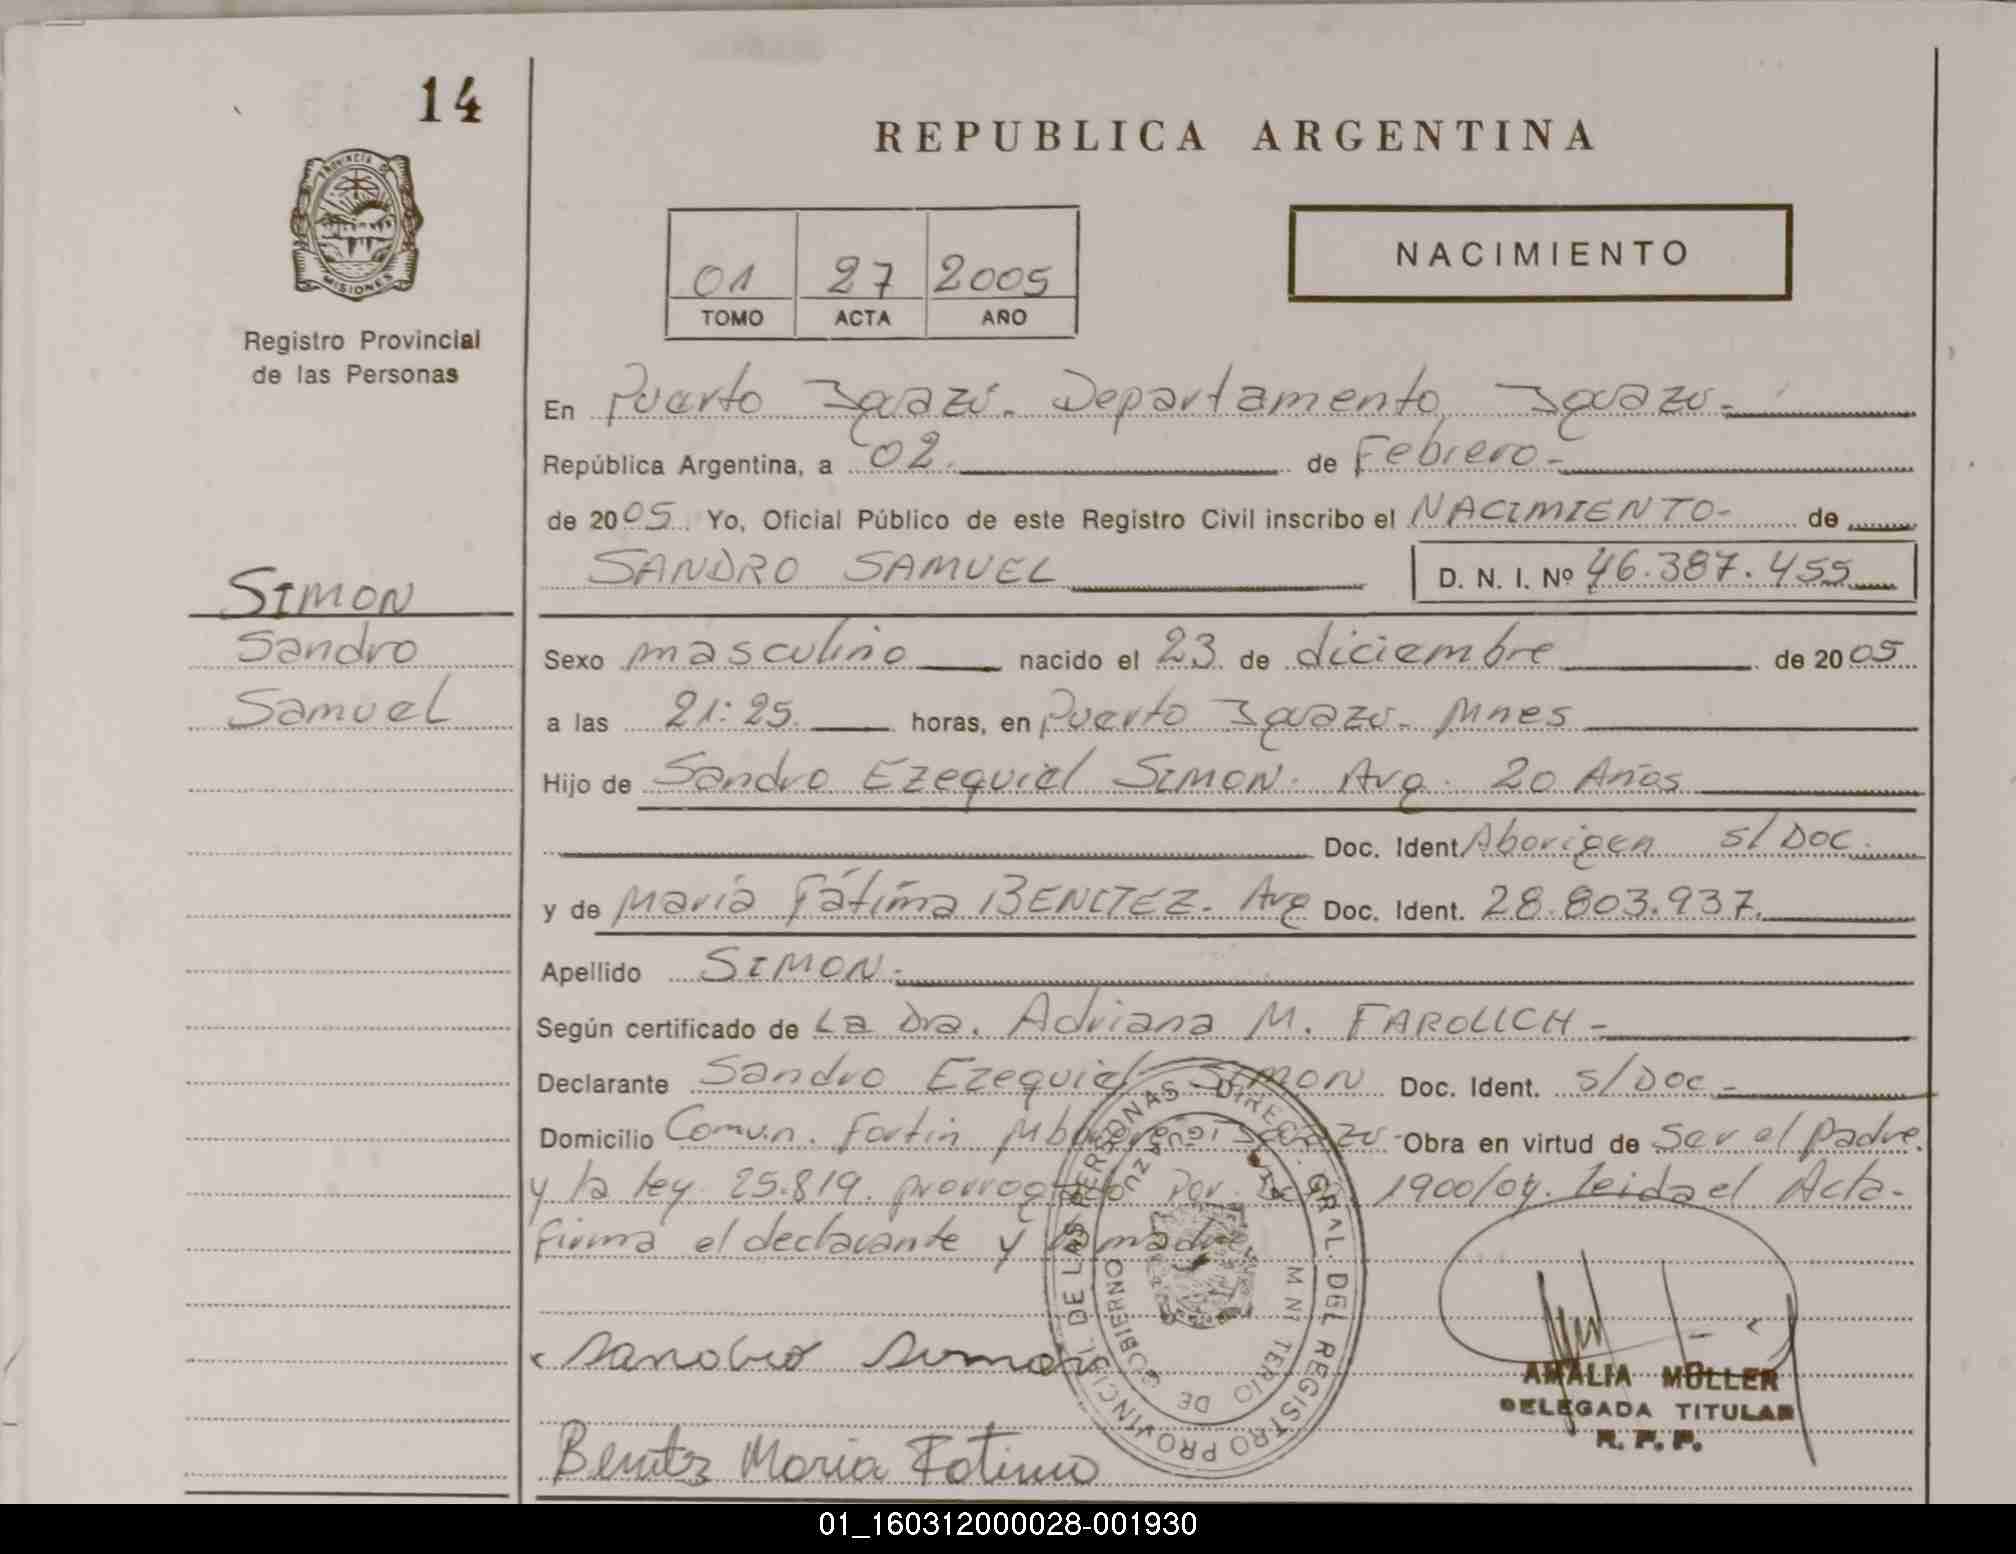 14
REPUBLICA ARGENTINA
PROVINCIA DE
MISIONES
Registro Provincial
de las Personas
01 27 2005
TOMO ACTA AÑO
NACIMIENTO
En Puerto Iguazú. Departamento Iguazú-
República Argentina, a 02. de Febrero-
de 2005 Yo, Oficial Público de este Registro Civil inscribo el NACIMIENTO- de
SANDRO SAMUEL D. N. I. Nº 46.387.455
SIMON
Sandro
Samuel
Sexo masculino nacido el 23 de diciembre de 2005
a las 21:25. horas, en Puerto Iguazú- Mnes
Hijo de Sandro Ezequiel SIMON. Arg. 20 Años
Doc. Ident. Aborigen s/Doc.
y de María Fátima BENITEZ- Arg Doc. Ident. 28.803.937.
Apellido SIMON-
Según certificado de La Dra. Adriana M.
Declarante Sandro Ezequiel SIMON Doc. Ident. s/Doc-
Domicilio Comun. Fortin Obra en virtud de Ser el padre.
y la ley 25.819. Por 1900/04. leida el Acta-
firma el declarante y la madre
DIREC. GRAL. DEL REGISTRO PROVINCIAL DE LAS PERSONAS
DE GOBIERNO
Sandro Simon
Benitez Maria Fatima
AMALIA MÜLLER
DELEGADA TITULAR
R. P. P.
01_160312000028-001930